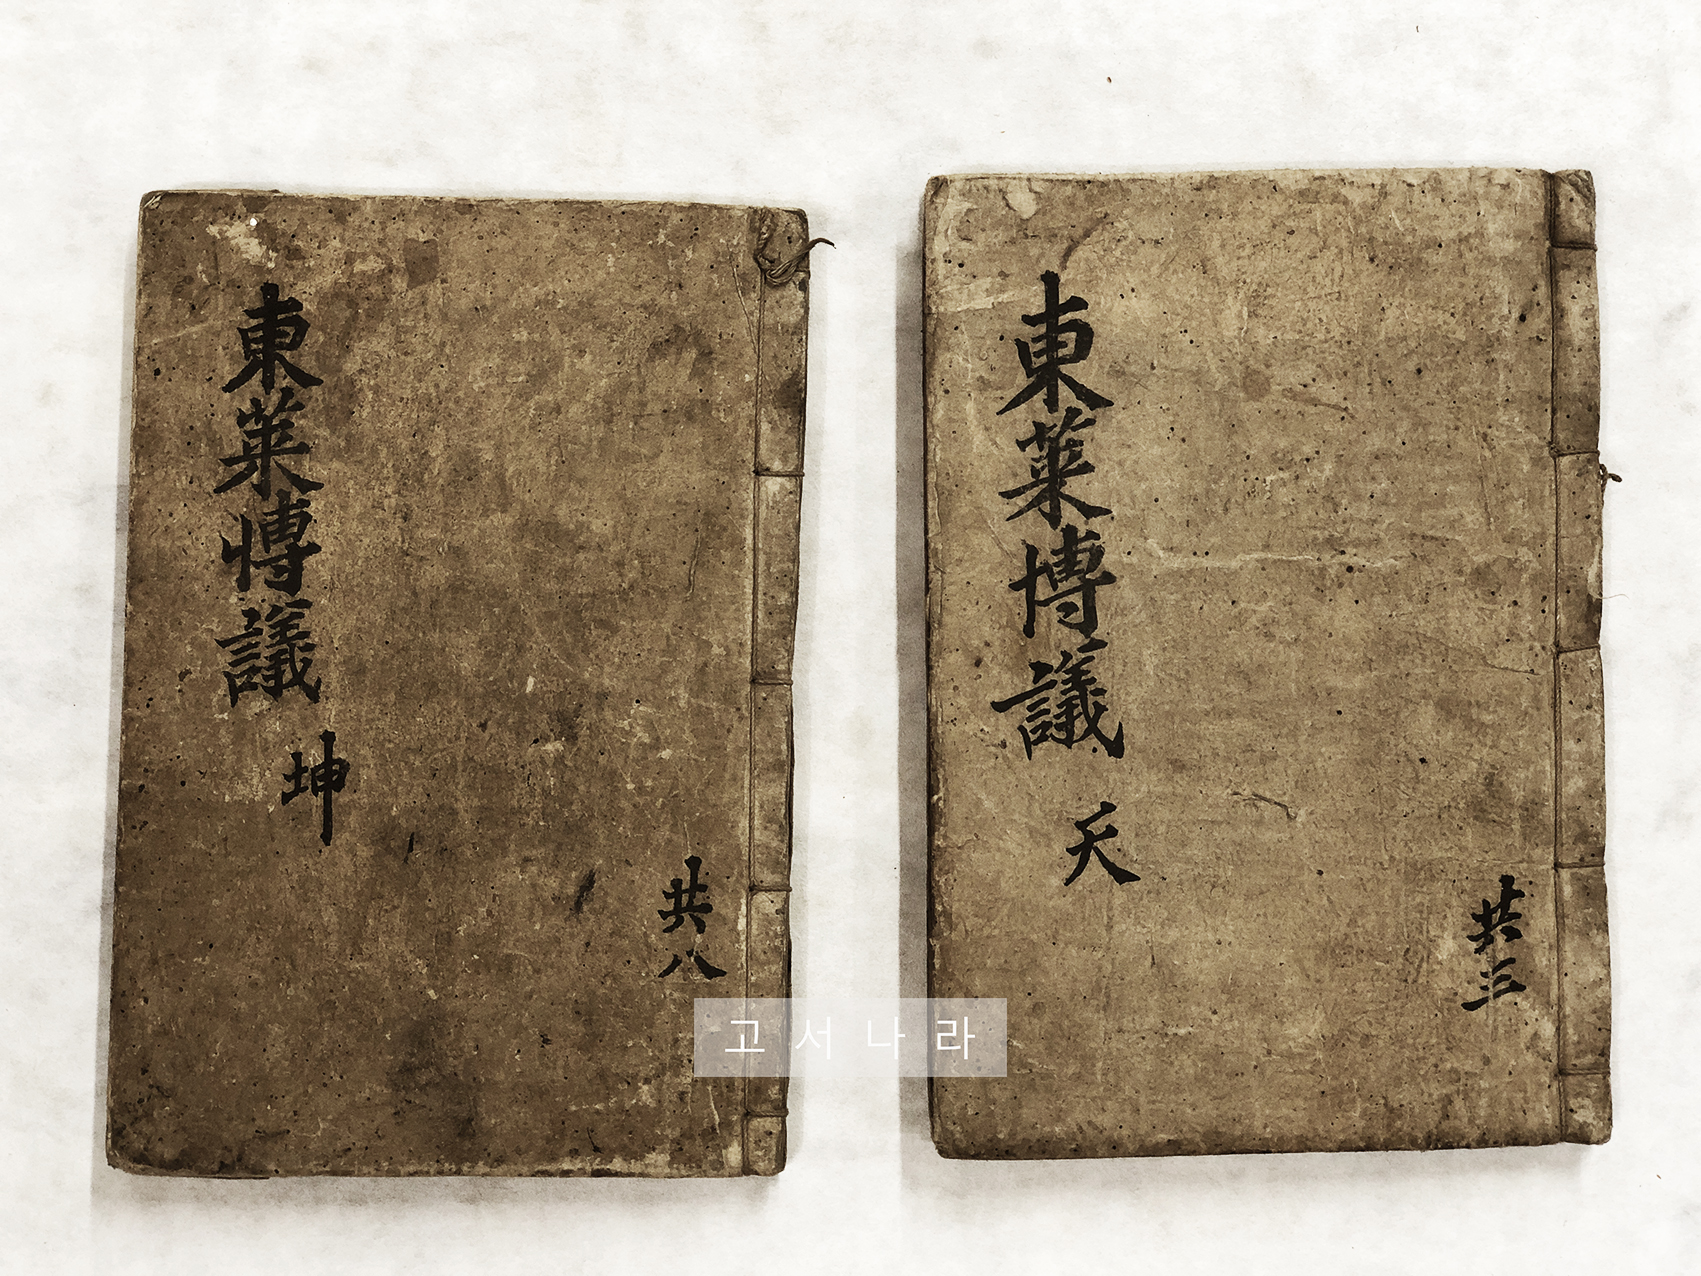 東萊博議
坤
共八
東萊博議
天
共三
고서나라